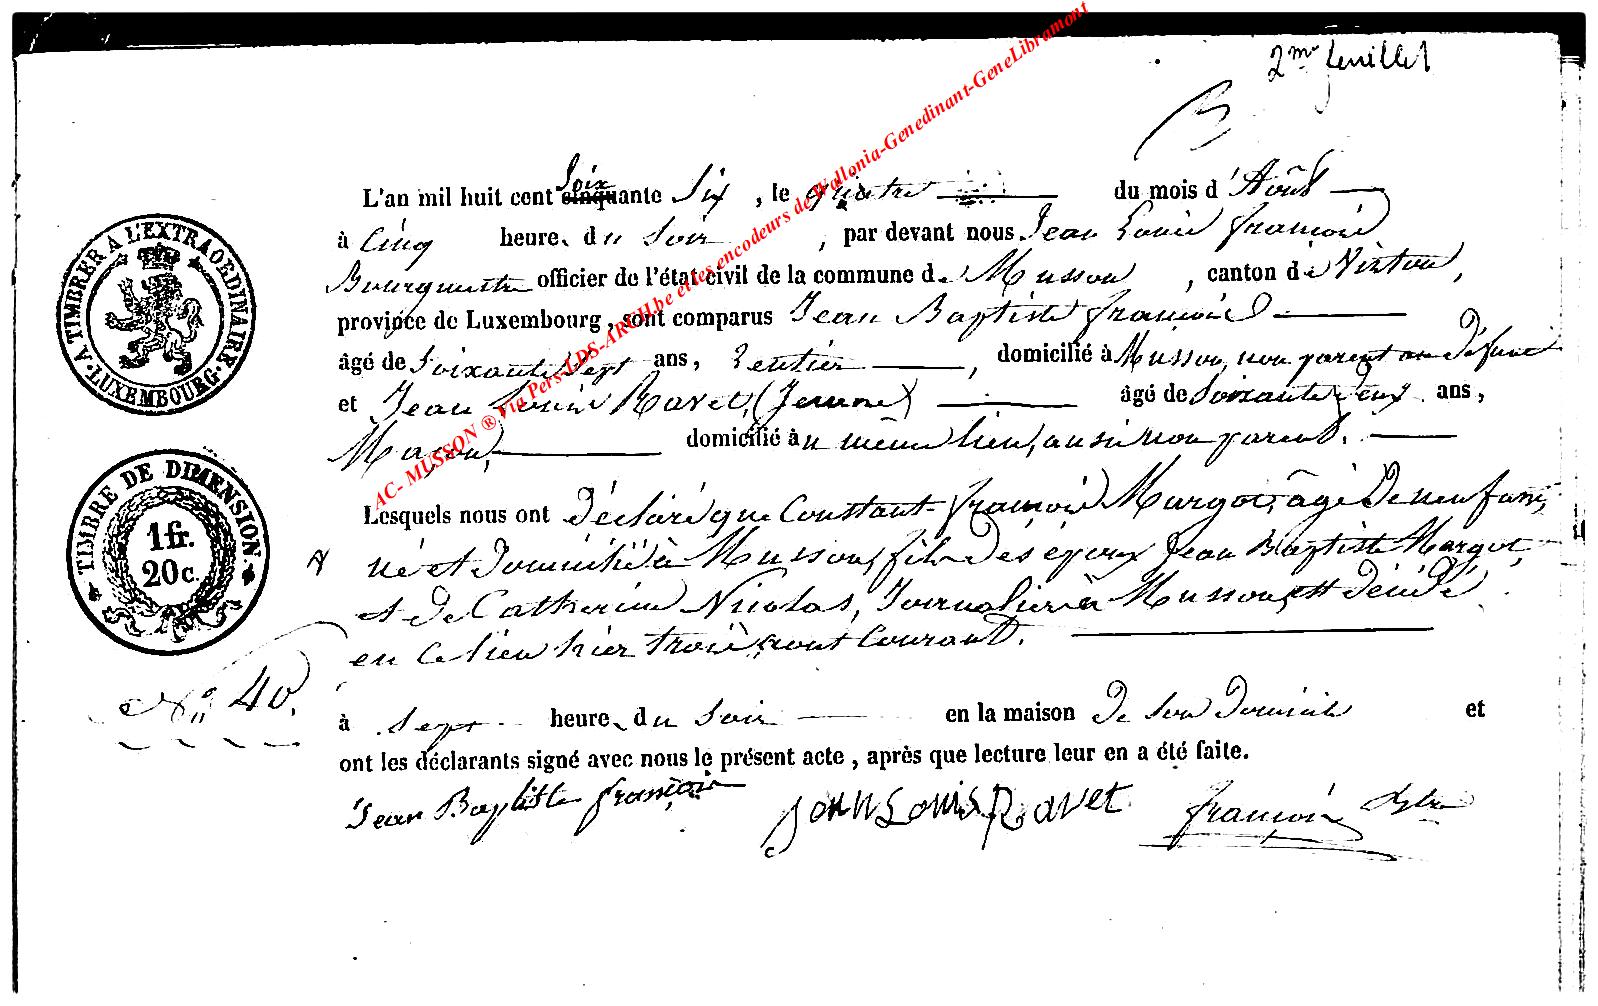 2me feuillet
L'an mil huit cent Soixante Six, le quatre du mois d'Août
à Cinq heures du Soir, par devant nous Jean Louis françois
officier de l'état civil de la commune de Musson, canton de Virton,
province de Luxembourg, sont comparus Jean Baptiste françois
âgé de Soixante Sept ans, Rentier, domicilié à Musson, non parent au Défunt
et Jean Louis Ravet, (Jeune) âgé de Soixante Deux ans,
Maçon, domicilié au même lieu, aussi non parent.
Lesquels nous ont Déclaré que Constant françois Margot, âgé De neuf ans,
né et Domicilié à Musson, fils Des époux Jean Baptiste Margot,
et de Catherine Nicolas, Journaliers à Musson, est Décédé
en Ce lieu hier trois août Courant.
à Sept heures du Soir en la maison De Son Domicile et
ont les déclarants signé avec nous le présent acte, après que lecture leur en a été faite.
Jean Baptiste françois Jean Louis Ravet françois
A TIMBRER A L'EXTRAORDINAIRE
LUXEMBOURG
TIMBRE DE DIMENSION
1 fr.
20 c.
No 40.
AC- MUSSON ® Via Pers-LDS-ARCH.be et les encodeurs de Wallonia-Genedinant-GeneLibramont